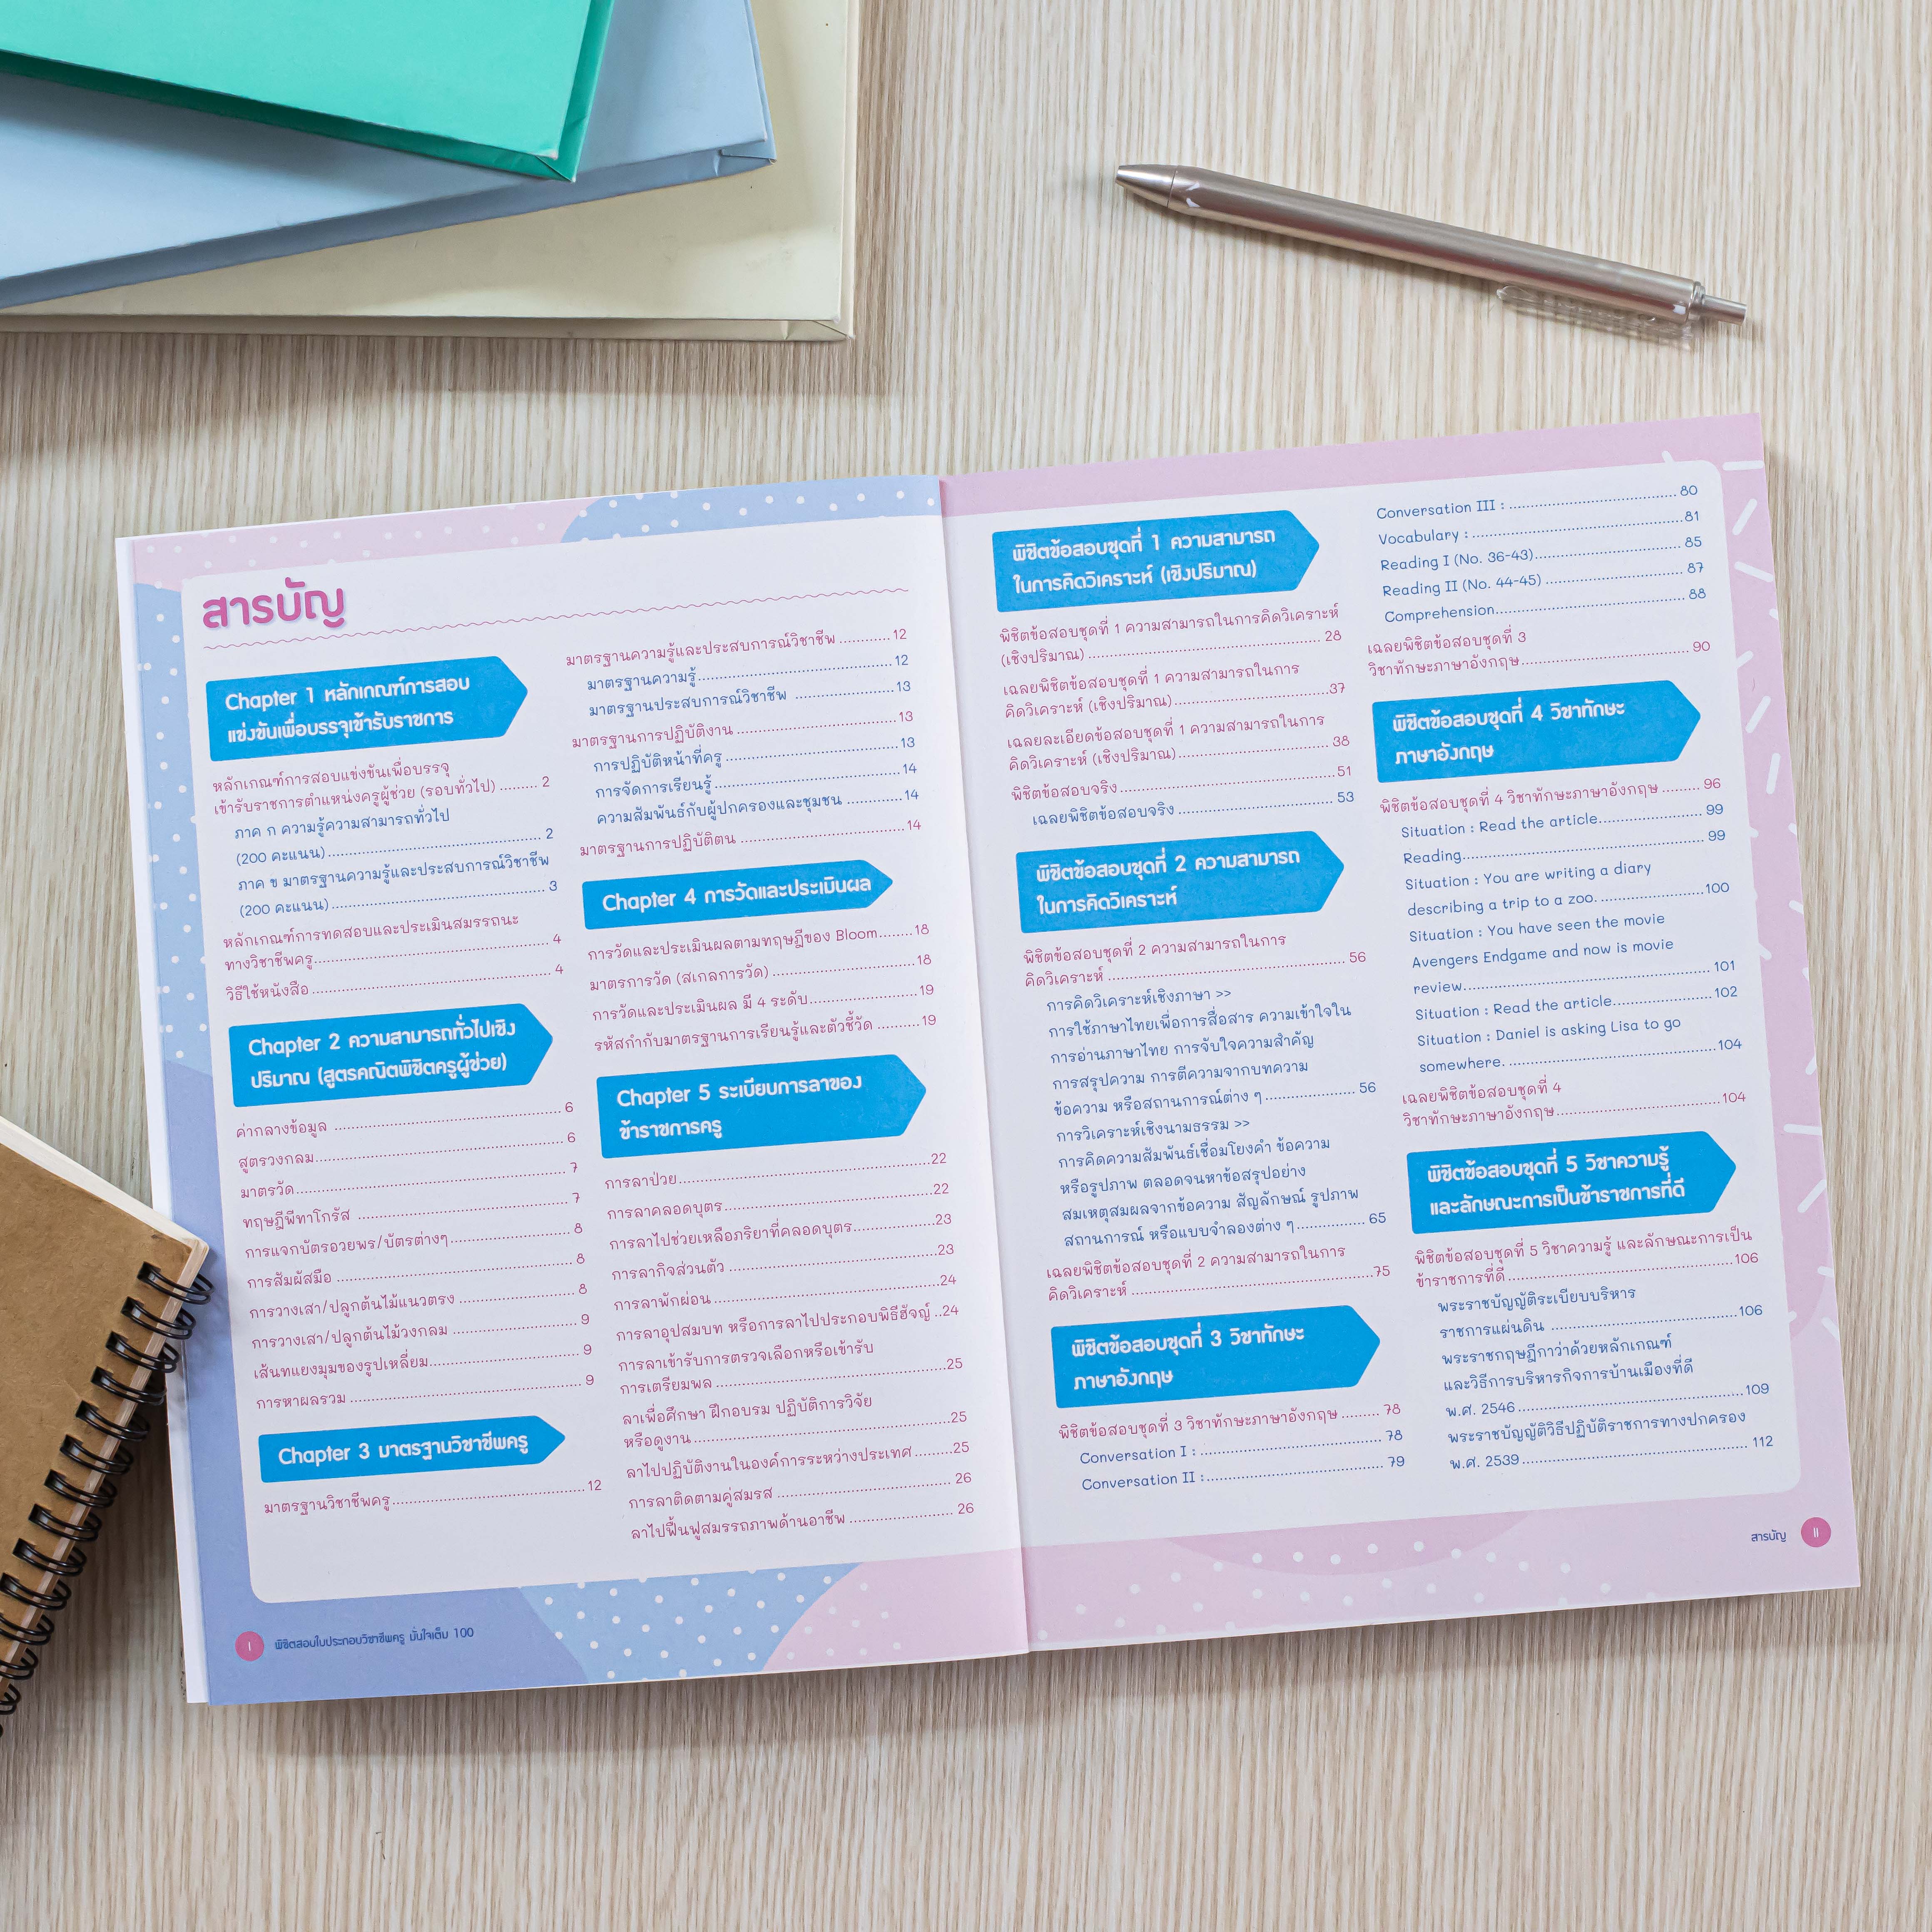 สารบัญ
Chapter 1 หลักเกณฑ์การสอบ
แข่งขันเพื่อบรรจุเข้ารับราชการ
หลักเกณฑ์การสอบแข่งขันเพื่อบรรจุ
เข้ารับราชการตำแหน่งครูผู้ช่วย (รอบทั่วไป) ......... 2
ภาค ก ความรู้ความสามารถทั่วไป
(200 คะแนน) ......... 2
ภาค ข มาตรฐานความรู้และประสบการณ์วิชาชีพ
(200 คะแนน) ......... 3
หลักเกณฑ์การทดสอบและประเมินสมรรถนะ
ทางวิชาชีพครู ......... 4
วิธีใช้หนังสือ ......... 4
Chapter 2 ความสามารถทั่วไปเชิง
ปริมาณ (สูตรคณิตพิชิตครูผู้ช่วย)
ค่ากลางข้อมูล ......... 6
สูตรวงกลม ......... 6
มาตรวัด ......... 7
ทฤษฎีพีทาโกรัส ......... 7
การแจกบัตรอวยพร/บัตรต่างๆ ......... 8
การสัมผัสมือ ......... 8
การวางเสา/ปลูกต้นไม้แนวตรง ......... 8
การวางเสา/ปลูกต้นไม้วงกลม ......... 9
เส้นทแยงมุมของรูปเหลี่ยม ......... 9
การหาผลรวม ......... 9
Chapter 3 มาตรฐานวิชาชีพครู
มาตรฐานวิชาชีพครู ......... 12
มาตรฐานความรู้และประสบการณ์วิชาชีพ ......... 12
มาตรฐานความรู้ ......... 12
มาตรฐานประสบการณ์วิชาชีพ ......... 13
มาตรฐานการปฏิบัติงาน ......... 13
การปฏิบัติหน้าที่ครู ......... 13
การจัดการเรียนรู้ ......... 14
ความสัมพันธ์กับผู้ปกครองและชุมชน ......... 14
มาตรฐานการปฏิบัติตน ......... 14
Chapter 4 การวัดและประเมินผล
การวัดและประเมินผลตามทฤษฎีของ Bloom ......... 18
มาตรการวัด (สเกลการวัด) ......... 18
การวัดและประเมินผล มี 4 ระดับ ......... 19
รหัสกำกับมาตรฐานการเรียนรู้และตัวชี้วัด ......... 19
Chapter 5 ระเบียบการลาของ
ข้าราชการครู
การลาป่วย ......... 22
การลาคลอดบุตร ......... 22
การลาไปช่วยเหลือภริยาที่คลอดบุตร ......... 23
การลากิจส่วนตัว ......... 23
การลาพักผ่อน ......... 24
การลาอุปสมบท หรือการลาไปประกอบพิธีฮัจญ์ ..24
การลาเข้ารับการตรวจเลือกหรือเข้ารับ
การเตรียมพล ......... 25
ลาเพื่อศึกษา ฝึกอบรม ปฏิบัติการวิจัย
หรือดูงาน ......... 25
ลาไปปฏิบัติงานในองค์การระหว่างประเทศ ......... 25
การลาติดตามคู่สมรส ......... 26
ลาไปฟื้นฟูสมรรถภาพด้านอาชีพ ......... 26
I พิชิตสอบใบประกอบวิชาชีพครู มั่นใจเต็ม 100
พิชิตข้อสอบชุดที่ 1 ความสามารถ
ในการคิดวิเคราะห์ (เชิงปริมาณ)
พิชิตข้อสอบชุดที่ 1 ความสามารถในการคิดวิเคราะห์
(เชิงปริมาณ) ......... 28
เฉลยพิชิตข้อสอบชุดที่ 1 ความสามารถในการ
คิดวิเคราะห์ (เชิงปริมาณ) ......... 37
เฉลยละเอียดข้อสอบชุดที่ 1 ความสามารถในการ
คิดวิเคราะห์ (เชิงปริมาณ) ......... 38
พิชิตข้อสอบจริง ......... 51
เฉลยพิชิตข้อสอบจริง ......... 53
พิชิตข้อสอบชุดที่ 2 ความสามารถ
ในการคิดวิเคราะห์
พิชิตข้อสอบชุดที่ 2 ความสามารถในการ
คิดวิเคราะห์ ......... 56
การคิดวิเคราะห์เชิงภาษา >>
การใช้ภาษาไทยเพื่อการสื่อสาร ความเข้าใจใน
การอ่านภาษาไทย การจับใจความสำคัญ
การสรุปความ การตีความจากบทความ
ข้อความ หรือสถานการณ์ต่าง ๆ ......... 56
การวิเคราะห์เชิงนามธรรม >>
การคิดความสัมพันธ์เชื่อมโยงคำ ข้อความ
หรือรูปภาพ ตลอดจนหาข้อสรุปอย่าง
สมเหตุสมผลจากข้อความ สัญลักษณ์ รูปภาพ
สถานการณ์ หรือแบบจำลองต่าง ๆ ......... 65
เฉลยพิชิตข้อสอบชุดที่ 2 ความสามารถในการ
คิดวิเคราะห์ ......... 75
พิชิตข้อสอบชุดที่ 3 วิชาทักษะ
ภาษาอังกฤษ
พิชิตข้อสอบชุดที่ 3 วิชาทักษะภาษาอังกฤษ ......... 78
Conversation I : ......... 78
Conversation II : ......... 79
Conversation III : ......... 80
Vocabulary : ......... 81
Reading I (No. 36-43) ......... 85
Reading II (No. 44-45) ......... 87
Comprehension ......... 88
เฉลยพิชิตข้อสอบชุดที่ 3
วิชาทักษะภาษาอังกฤษ ......... 90
พิชิตข้อสอบชุดที่ 4 วิชาทักษะ
ภาษาอังกฤษ
พิชิตข้อสอบชุดที่ 4 วิชาทักษะภาษาอังกฤษ ......... 96
Situation : Read the article ......... 99
Reading ......... 99
Situation : You are writing a diary
describing a trip to a zoo. ......... 100
Situation : You have seen the movie
Avengers Endgame and now is movie
review ......... 101
Situation : Read the article ......... 102
Situation : Daniel is asking Lisa to go
somewhere. ......... 104
เฉลยพิชิตข้อสอบชุดที่ 4
วิชาทักษะภาษาอังกฤษ ......... 104
พิชิตข้อสอบชุดที่ 5 วิชาความรู้
และลักษณะการเป็นข้าราชการที่ดี
พิชิตข้อสอบชุดที่ 5 วิชาความรู้ และลักษณะการเป็น
ข้าราชการที่ดี ......... 106
พระราชบัญญัติระเบียบบริหาร
ราชการแผ่นดิน ......... 106
พระราชกฤษฎีกาว่าด้วยหลักเกณฑ์
และวิธีการบริหารกิจการบ้านเมืองที่ดี
พ.ศ. 2546 ......... 109
พระราชบัญญัติวิธีปฏิบัติราชการทางปกครอง
พ.ศ. 2539 ......... 112
สารบัญ II